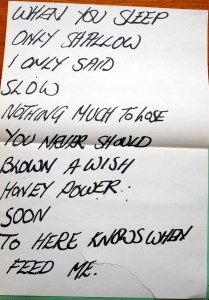 WHEN YOU SLEEP
ONLY SHALLOW
I ONLY SAID
SLOW
NOTHING MUCH TO LOSE
YOU NEVER SHOULD
BLOWN A WISH
HONEY POWER:
SOON
TO HERE KNOWS WHEN
FEED ME.